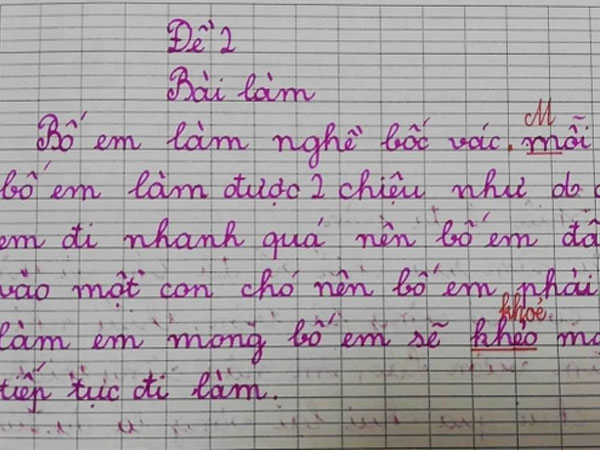 Đề 2
Bài làm
M
Bố em làm nghề bốc vác. mỗi
bố em làm được 2 chiệu như do
em đi nhanh quá nên bố em
vào một con chó nên bố em phải
khoẻ.
làm em mong bố em sẽ khẻo
tiếp tục đi làm.